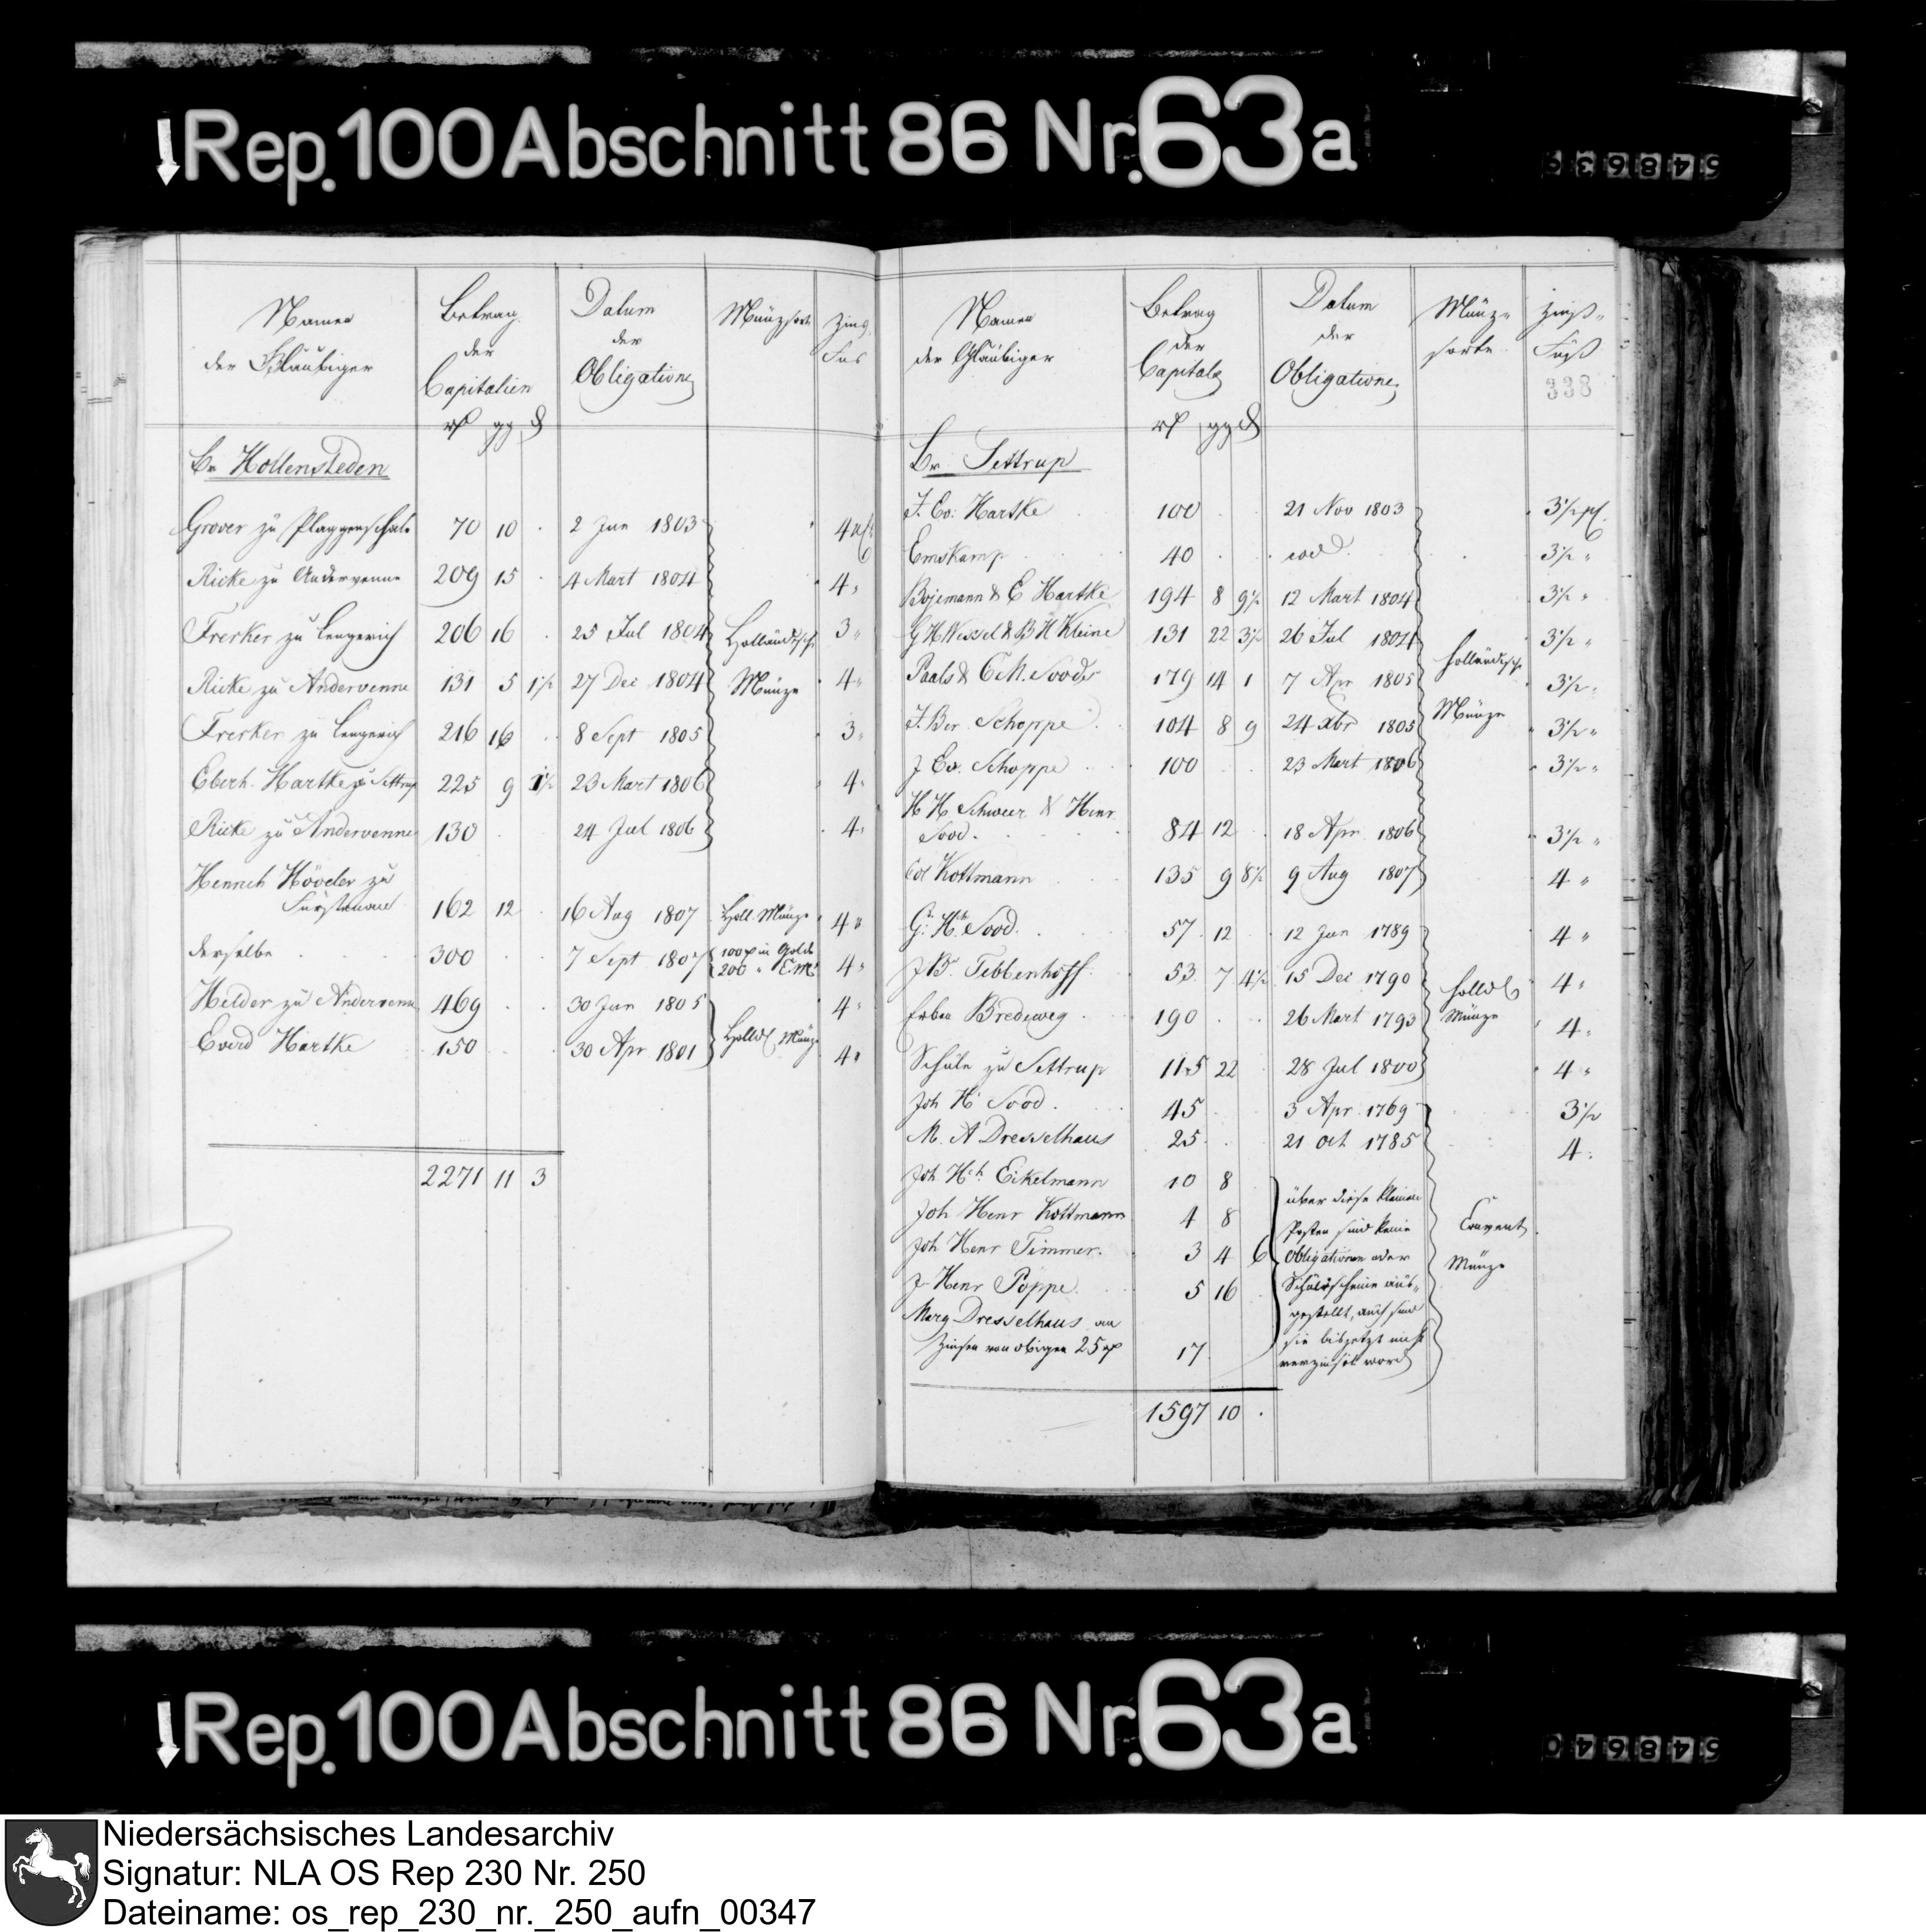 Rep. 100 Abschnitt 86 Nr. 63a
548639
Namen der Gläubiger | Betrag der Capitalien | Datum der Obligationen | Münzsorte | Zins Fus
rt gg d
Br Hollensteden
Grover zu Plaggenschale 70 10 . 2 Jan 1803 4 pC
Ricke zu Andervenne 209 15 . 4 Mart 1804 4 "
Frerker zu Lengerich 206 16 . 25 Jul 1804 Holländische 3 "
Ricke zu Andervenne 131 5 1½ 27 Dec 1804 Münze 4 "
Frerker zu Lengerich 216 16 . 8 Sept 1805 3 "
Eberh. Hartke zu Settrup 225 9 1½ 23 Mart 1806 4 "
Ricke zu Andervenne 130 . . 24 Jul 1806 4 "
Henrich Höveler zu
Fürstenau 162 12 . 16 Aug 1807 Holl. Münze 4 "
derselbe 300 . . 7 Sept 1807 100 rt in Golde 4 "
200 " C.M.
Helder zu Andervenne 469 . . 30 Jan 1805 4 "
Everd Hartke 150 . . 30 Apr 1801 Holld. Münze 4 "
2271 11 3
Namen der Gläubiger | Betrag der Capitale | Datum der Obligationen | Münz- sorte | Zinß- Fuß
338
rt gg d
Br Settrup
J. Ev. Hartke 100 . . 21 Nov 1803 3½ pC.
Emskamp 40 . . eod. 3½ "
Bojemann & E Hartke 194 8 9½ 12 Mart 1804 3½ "
G H Wessel & B H Kleine 131 22 3½ 26 Jul 1804 3½ "
Paals & C M. Sood 179 14 1 7 Apr 1805 holländische 3½ "
J. Ber Schoppe 104 8 9 24 xbr 1805 Münze 3½ "
J Ev. Schoppe 100 . . 23 Mart 1806 3½ "
H H Schweer & Henr
Sood. 84 12 . 18 Apr 1806 3½ "
Kottmann 135 9 8½ 9 Aug 1807 4 "
G: H. Sood. 57 12 12 Jan 1789 4 "
J B. Tebbenhoff 53 7 4½ 15 Dec 1790 holld. 4 "
Erben Bredeweg 190 . . 26 Mart 1793 Münze 4 "
Schule zu Settrup 115 22 28 Jul 1800 4 "
Joh H Sood. 45 . . 3 Apr. 1769 3½
M. A Dresselhaus 25 . . 21 Oct 1785 4 "
Joh Hch Eikelmann 10 8 über diese kleinen
Joh Henr Kottmann 4 8 Posten sind keine Convent.
Joh Henr Timmer. 3 4 6 Obligationen oder Münze
J Henr Poppe 5 16 Schuldscheine aus-
gestellt, auch sind
Marg Dresselhaus an sie bisjetzt nicht
Zinsen von obigen 25 rt 17 verzinset word
1597 10 .
Rep. 100 Abschnitt 86 Nr. 63a
548640
Niedersächsisches Landesarchiv
Signatur: NLA OS Rep 230 Nr. 250
Dateiname: os_rep_230_nr._250_aufn_00347